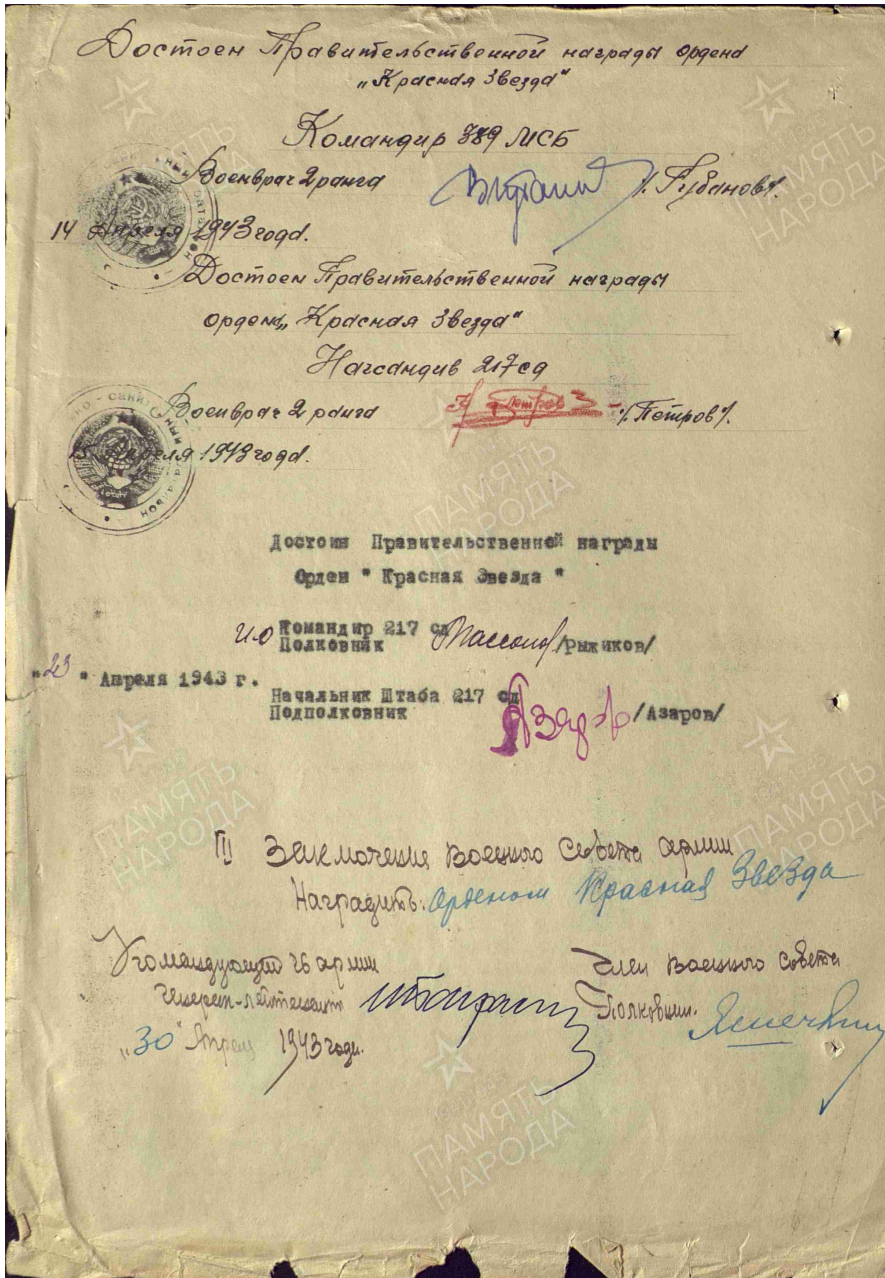 Достоен Правительственной награды ордена
„Красная Звезда"
Командир 389 МСБ
Военврач 2 ранга /. Губанов /.
14 Апреля 1943 года.
Достоен Правительственной награды
орден „Красная Звезда"
Начсандив 217 сд
Военврач 2 ранга Петров /. Петров /.
15 Апреля 1943 года.
Достоин Правительственней награды
Орден " Красная Звезда "
и.о Командир 217 сд
Полковник /Рыжиков/
"23" Апреля 1943 г.
Начальник Штаба 217 сд
Подполковник Азаров /Азаров/
III Заключение Военного Совета армии
Наградить: Орденом Красная Звезда
Командующий 16 армии Член Военного Совета
Генерал-лейтенант Полковник.
„30" Апреля 1943 года.
ПАМЯТЬ
НАРОДА